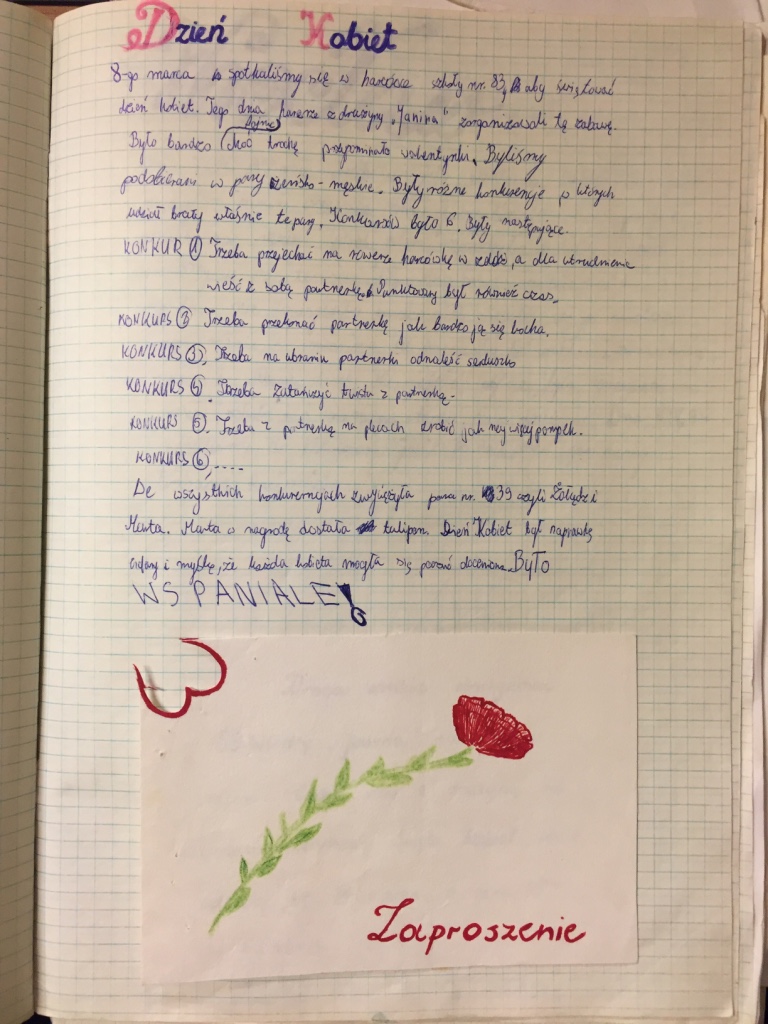 Dzień Kobiet
8-go marca spotkaliśmy się w harcówce szkoły nr. 83, aby świętować
dzień kobiet. Tego dnia harcerze z drużyny „Janina" zorganizowali tą zabawę.
fajnie
Było bardzo choć trochę przypominało walentynki. Byliśmy
podobierani w pary żeńsko-męskie. Były różne konkurencje w których
udział brały właśnie te pary. Konkursów było 6. Były następujące.
KONKUR 1 Trzeba przejechać na rowerze harcówkę w, a dla utrudnienia
wieść z sobą partnerkę. Punktowany był również czas.
KONKURS 2 Trzeba przekonać partnerkę jak bardzo ją się kocha.
KONKURS 3, Trzeba na ubraniu partnerki odnaleść serduszko
KONKURS 4. Trzeba zatańczyć twista z partnerką.
KONKURS 5. Trzeba z partnerką na plecach zrobić jak najwięcej pompek.
KONKURS 6,....
We wszystkich konkurencjach zwyciężyła para nr. 39 czyli Żołądź i
Marta. Marta w nagrodę dostała tulipan. Dzień Kobiet był naprawdę
udany i myślę, że każda kobieta mogła się poczuć doceniona. Było
WSPANIALE!
Zaproszenie